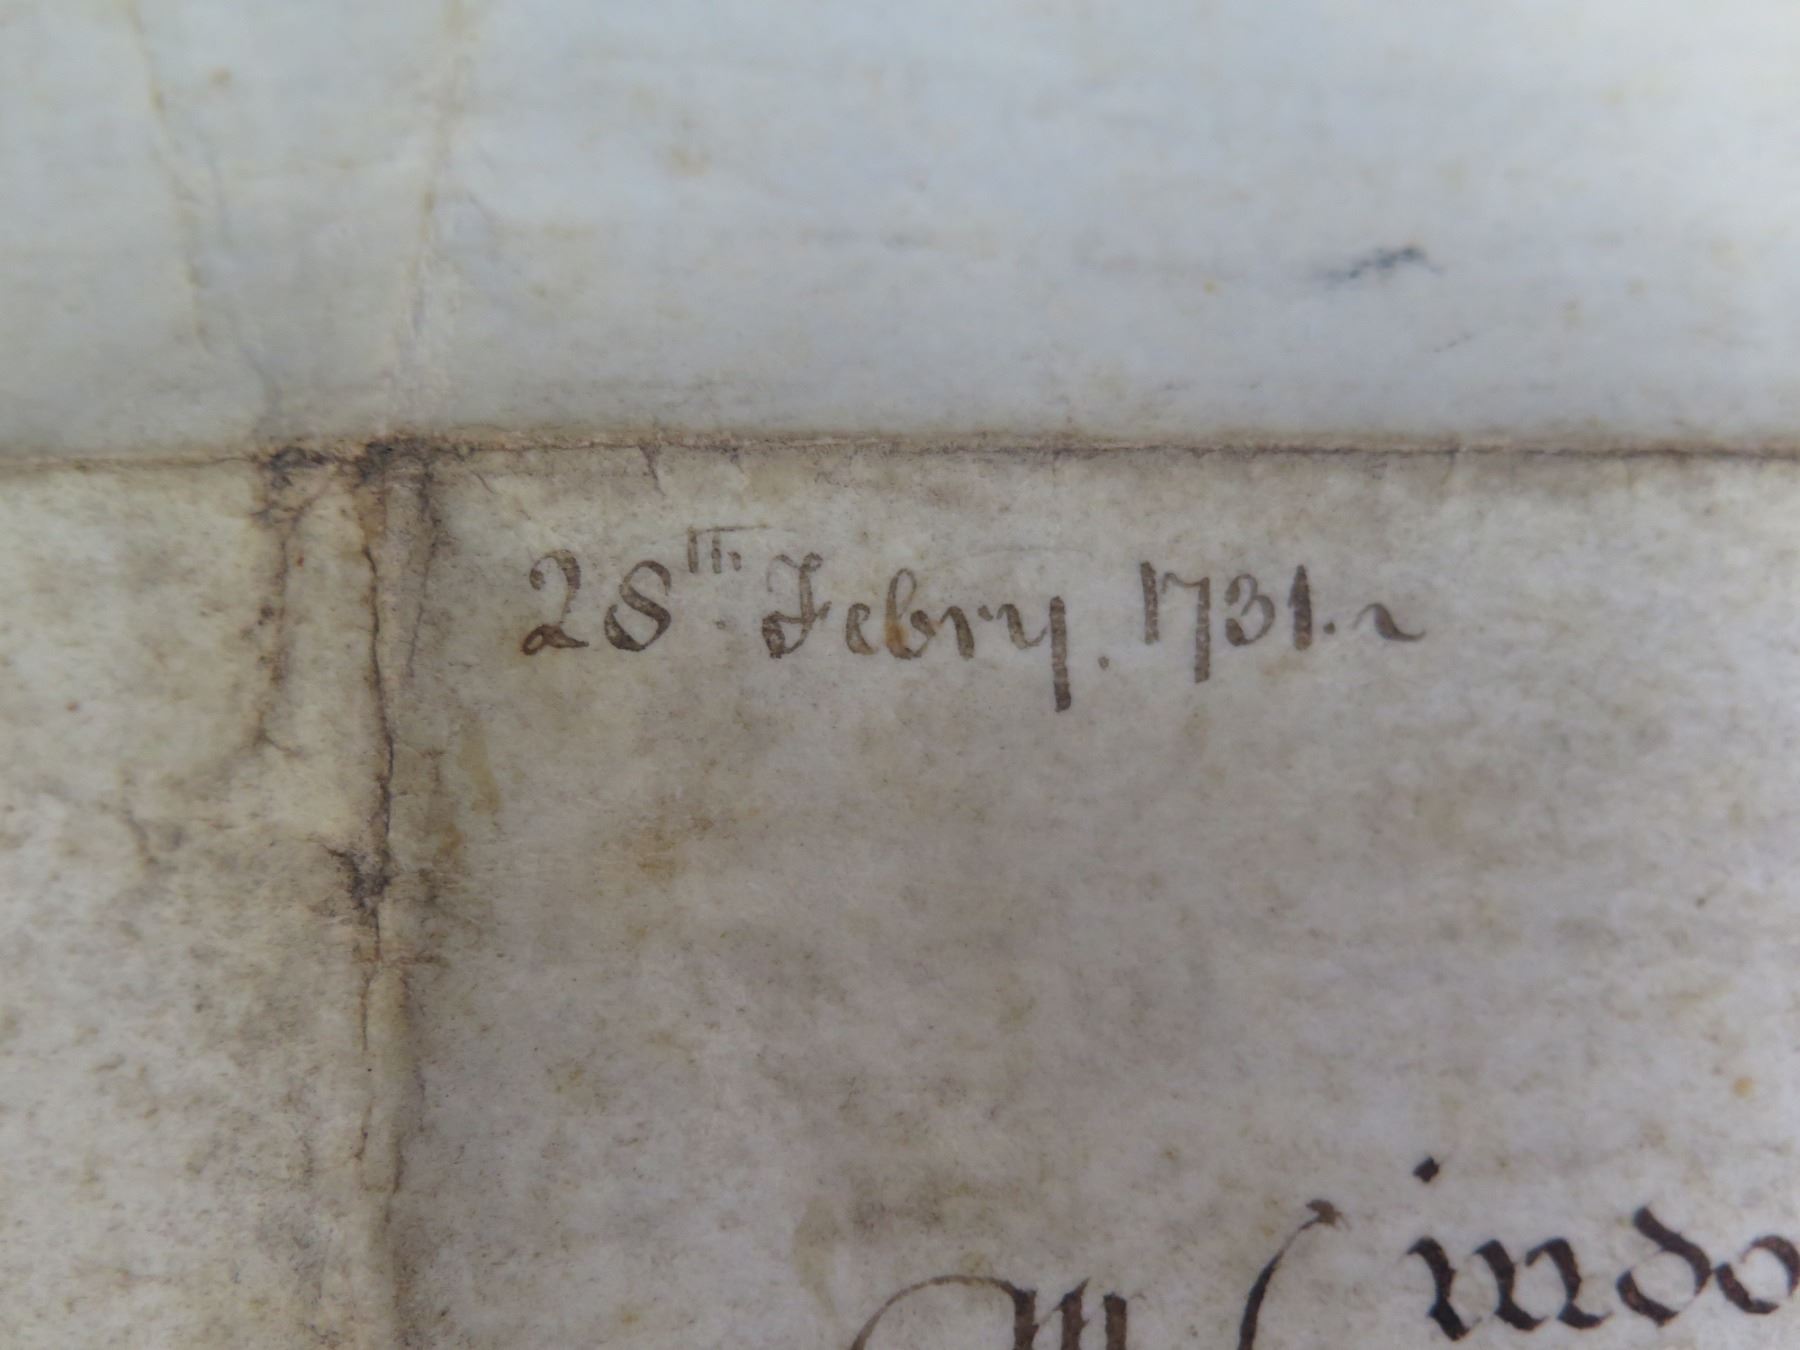 28th. Febry. 1731.
Windo